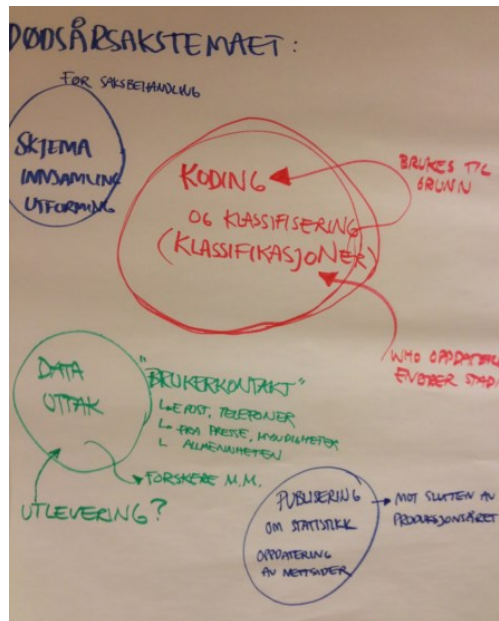 DØDSÅRSAKSTEMAET:
FØR SAKSBEHANDLING
SKJEMA
INNSAMLING
UTFORMING
KODING
OG KLASSIFISERING
(KLASSIFIKASJONER)
BRUKES TIL
GRUNN
WHO OPPDATERER
STADI
DATA
UTTAK
"BRUKERKONTAKT"
EPOST, TELEFONER
FRA PRESSE, MYNDIGHETER
ALLMENNHETEN
FORSKERE M.M.
UTLEVERING?
PUBLISERING
OM STATISTIKK
OPPDATERING
AV NETTSIDER
MOT SLUTTEN AV
PRODUKSJONSÅRET